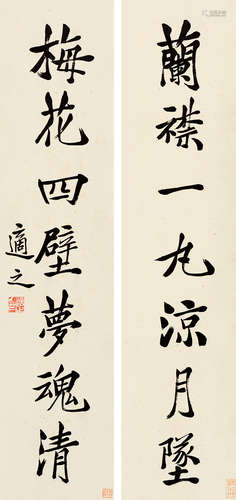 蘭襟一丸涼月墜
梅花四壁夢魂清
適之